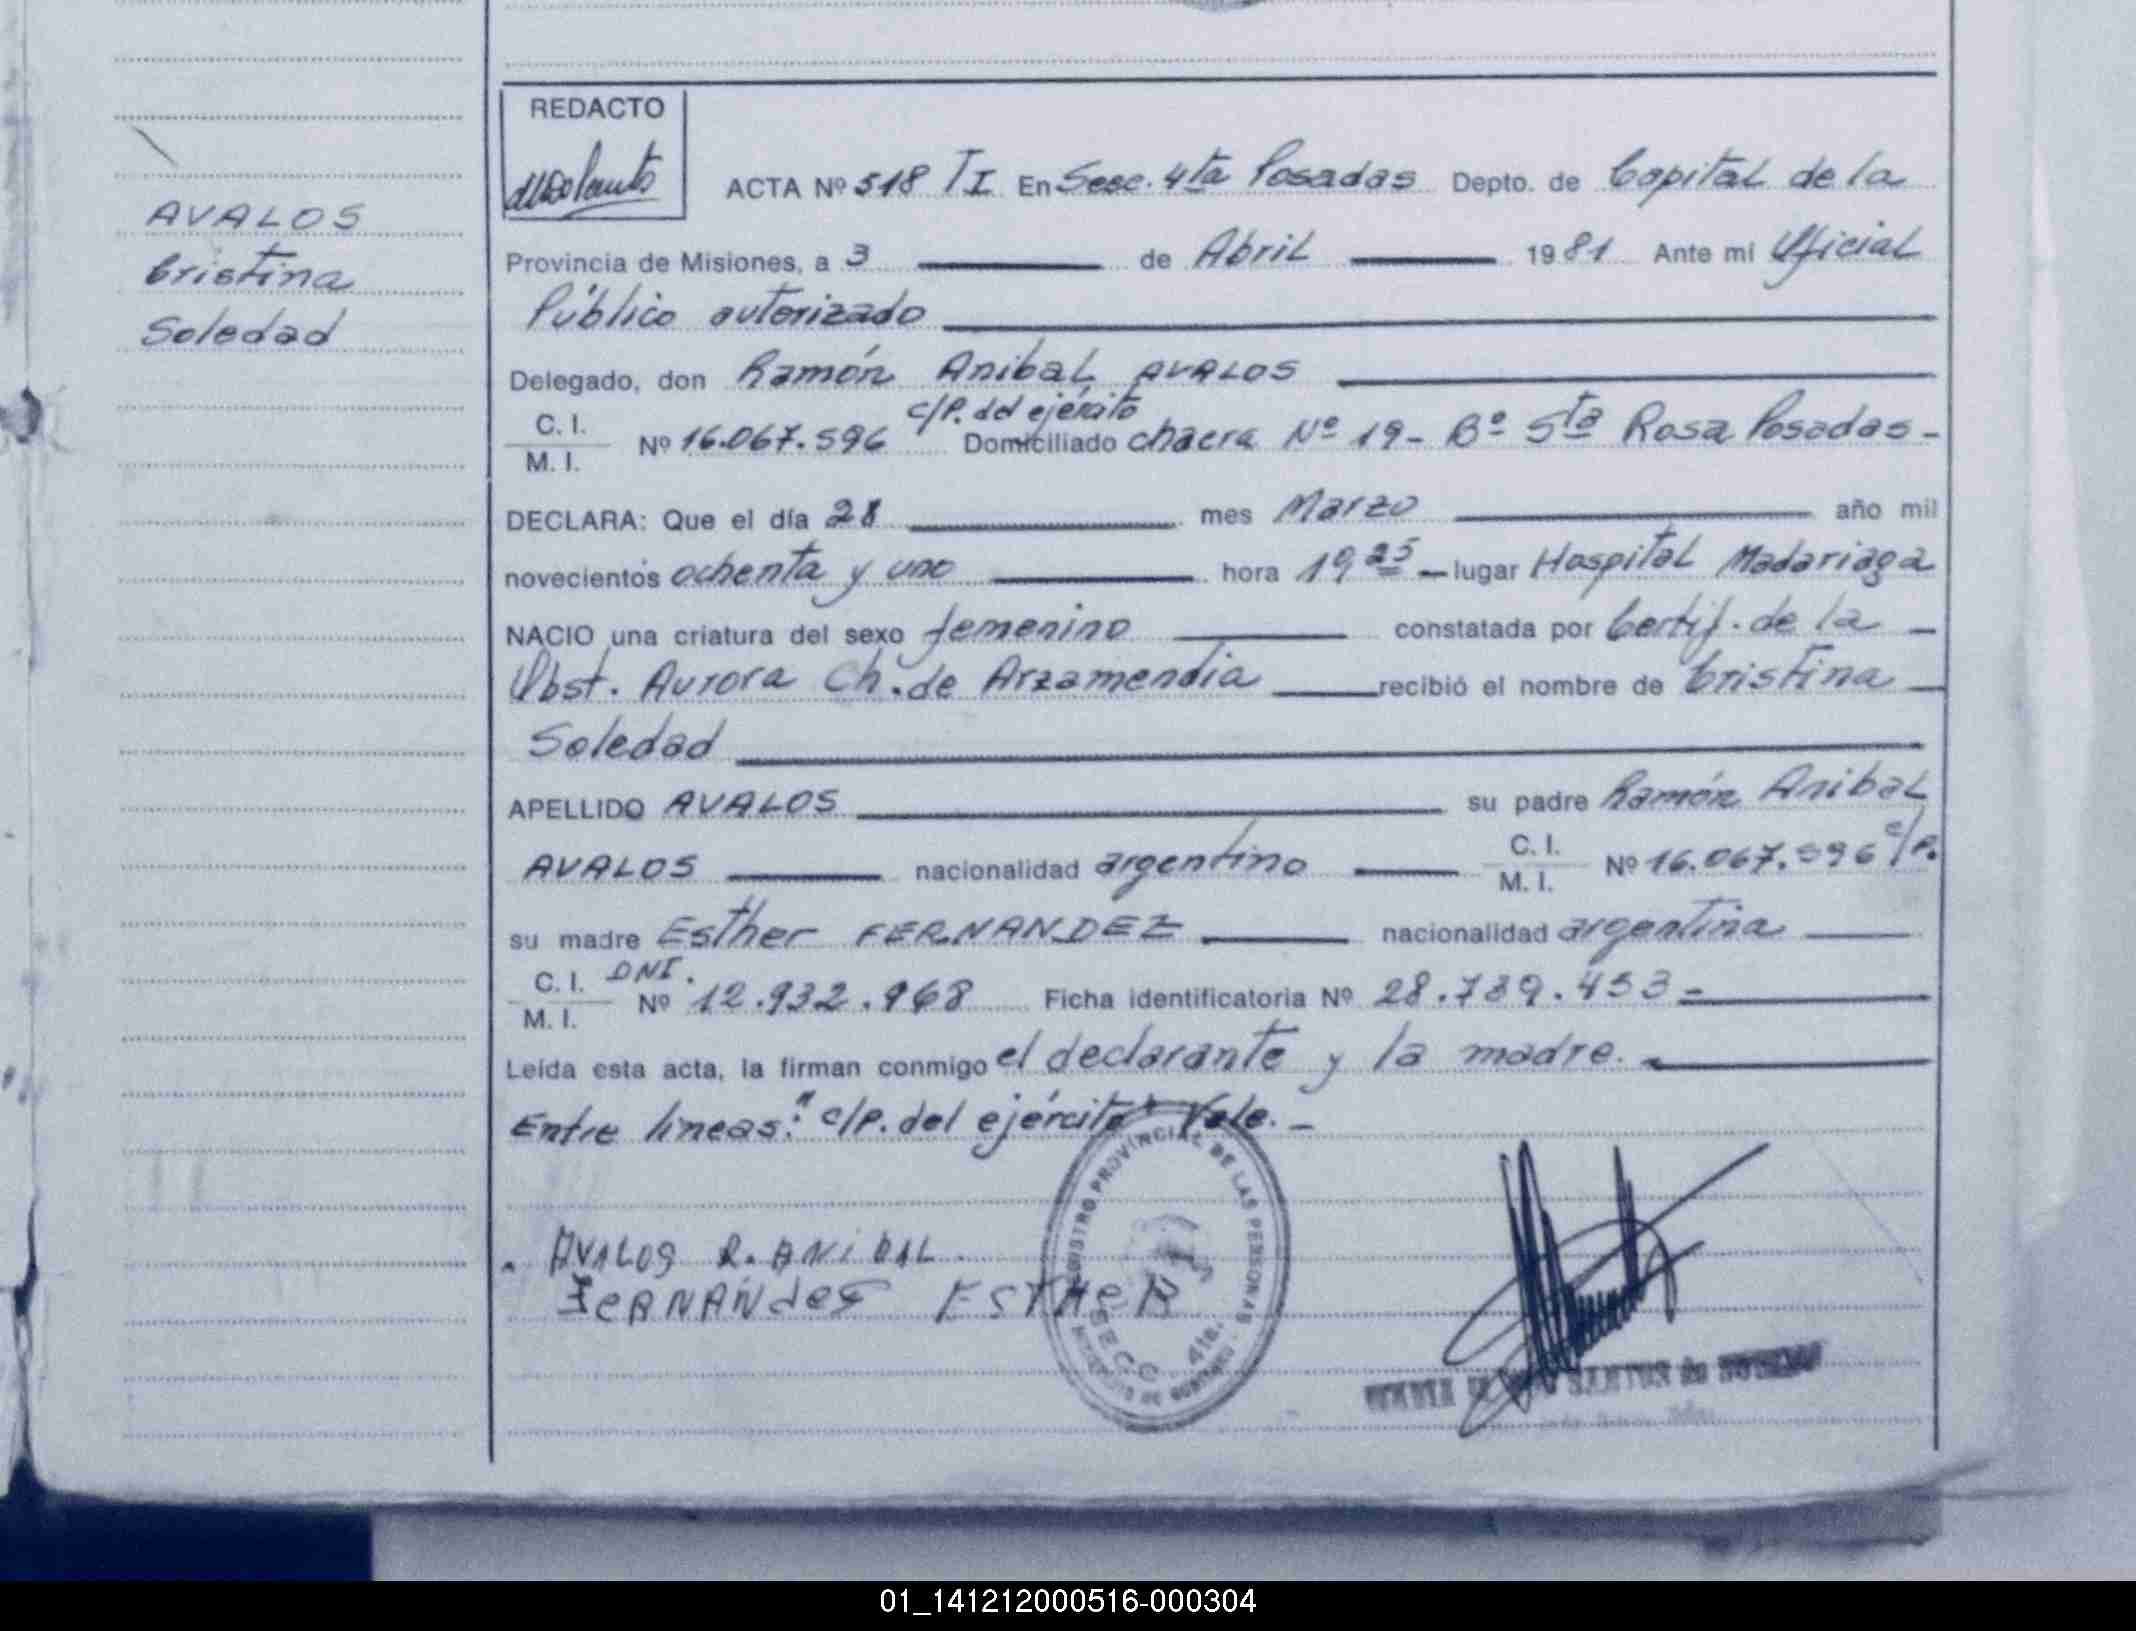 REDACTO
AVALOS
Cristina
Soledad
ACTA Nº 518 TI En Secc. 4ta Posadas Depto. de Capital de la
Provincia de Misiones, a 3 de Abril 1981 Ante mi Oficial
Público autorizado
Delegado, don Ramón Anibal AVALOS
c/P. del ejército
C. I.
M. I. Nº 16.067.596 Domiciliado chacra Nº 19- Bº Sta Rosa Posadas-
DECLARA: Que el día 28 mes Marzo año mil
novecientos ochenta y uno hora 19,25 - lugar Hospital Madariaga
NACIO una criatura del sexo femenino constatada por Certif. de la
Obst. Aurora Ch. de Arzamendia recibió el nombre de Cristina
Soledad
APELLIDO AVALOS su padre Ramón Anibal
AVALOS nacionalidad argentino C. I. M. I. Nº 16.067.596 c/P.
su madre Esther FERNANDEZ nacionalidad argentina
C. I. M. I. DNI. Nº 12.932.968 Ficha identificatoria Nº 28.739.453-
Leída esta acta, la firman conmigo el declarante y la madre.
Entre líneas: "c/P. del ejército" Vale.-
REGISTRO PROVINCIAL DE LAS PERSONAS
SECC. 4ta.
AVALOS R. ANiBAL
FeRNANdes ESTHeR
SANTOS de
01_141212000516-000304